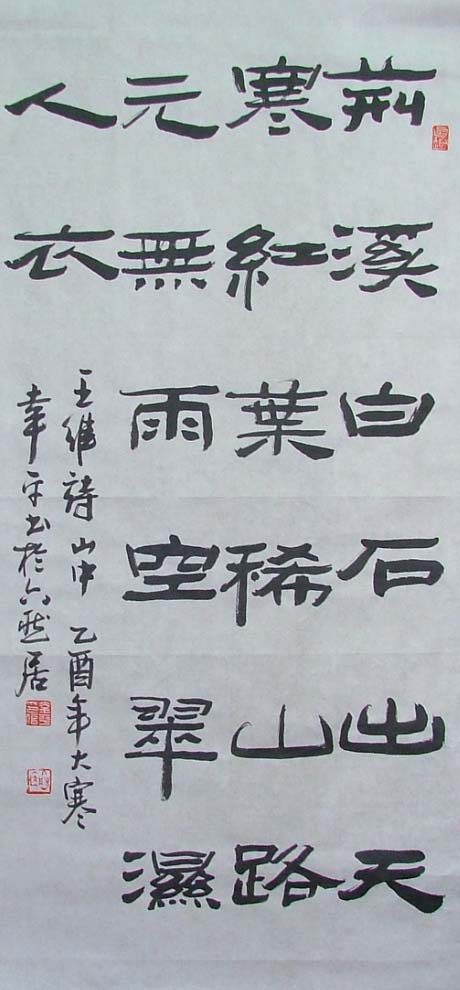 荊溪白石出天
寒紅葉稀山路
元無雨空翠濕
人衣
王維詩山中 乙酉年大寒
平书於六居